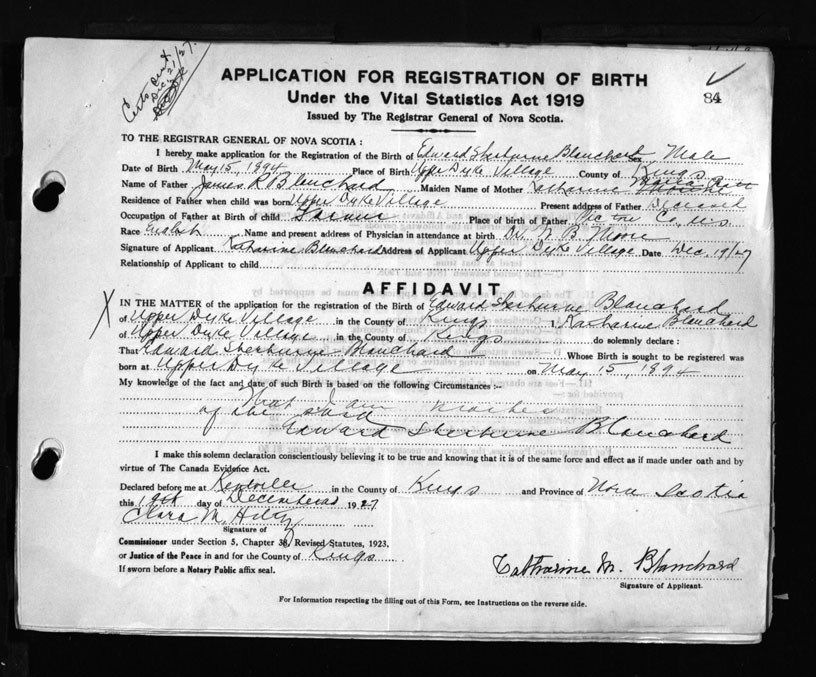 Certs sent
Dec 21/27.
APPLICATION FOR REGISTRATION OF BIRTH
84
Under the Vital Statistics Act 1919
Issued by The Registrar General of Nova Scotia.
TO THE REGISTRAR GENERAL OF NOVA SCOTIA:
I hereby make application for the Registration of the Birth of Edward Sherburne Blanchard Sex Male
Date of Birth May 15, 1894 Place of Birth Upper Dyke Village County of Kings
Name of Father James R Blanchard Maiden Name of Mother Katharine
Residence of Father when child was born Upper Dyke Village Present address of Father Deceased
Occupation of Father at Birth of child Farmer Place of birth of Father Pictou Co., N.S.
Race English Name and present address of Physician in attendance at birth Dr. W. B. Moore
Signature of Applicant Katharine Blanchard Address of Applicant Upper Dyke Village Date Dec. 19/27
Relationship of Applicant to child
AFFIDAVIT
IN THE MATTER of the application for the registration of the Birth of Edward Sherburne Blanchard
of Upper Dyke Village in the County of Kings I, Katharine Blanchard
of Upper Dyke Village in the County of Kings do solemnly declare:
That Edward Sherburne Blanchard Whose Birth is sought to be registered was
born at Upper Dyke Village on May 15, 1894
My knowledge of the fact and date of such Birth is based on the following Circumstances:—
That I am Mother
of the said
Edward Sherburne Blanchard
I make this solemn declaration conscientiously believing it to be true and knowing that it is of the same force and effect as if made under oath and by
virtue of The Canada Evidence Act.
Declared before me at Kentville in the County of Kings and Province of Nova Scotia
this 19th day of December 1927
Clara M. Hiltz
Signature of
Commissioner under Section 5, Chapter 38, Revised Statutes, 1923,
or Justice of the Peace in and for the County of Kings
If sworn before a Notary Public affix seal.
Catharine M. Blanchard
Signature of Applicant.
For Information respecting the filling out of this Form, see Instructions on the reverse side.